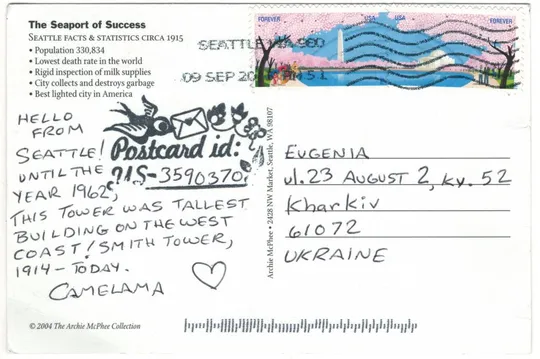 The Seaport of Success
SEATTLE FACTS & STATISTICS CIRCA 1915
• Population 330,834
• Lowest death rate in the world
• Rigid inspection of milk supplies
• City collects and destroys garbage
• Best lighted city in America
FOREVER USA USA FOREVER
SEATTLE WA 980
09 SEP 20
HELLO
FROM
SEATTLE!
UNTIL THE
YEAR 1962,
THIS TOWER WAS TALLEST
BUILDING ON THE WEST
COAST! SMITH TOWER,
1914 – TODAY.
CAMELAMA
Postcard id:
US-3590370
Archie McPhee • 2428 NW Market, Seattle, WA 98107
EUGENIA
ul. 23 AUGUST 2, kv. 52
Kharkiv
61072
UKRAINE
© 2004 The Archie McPhee Collection